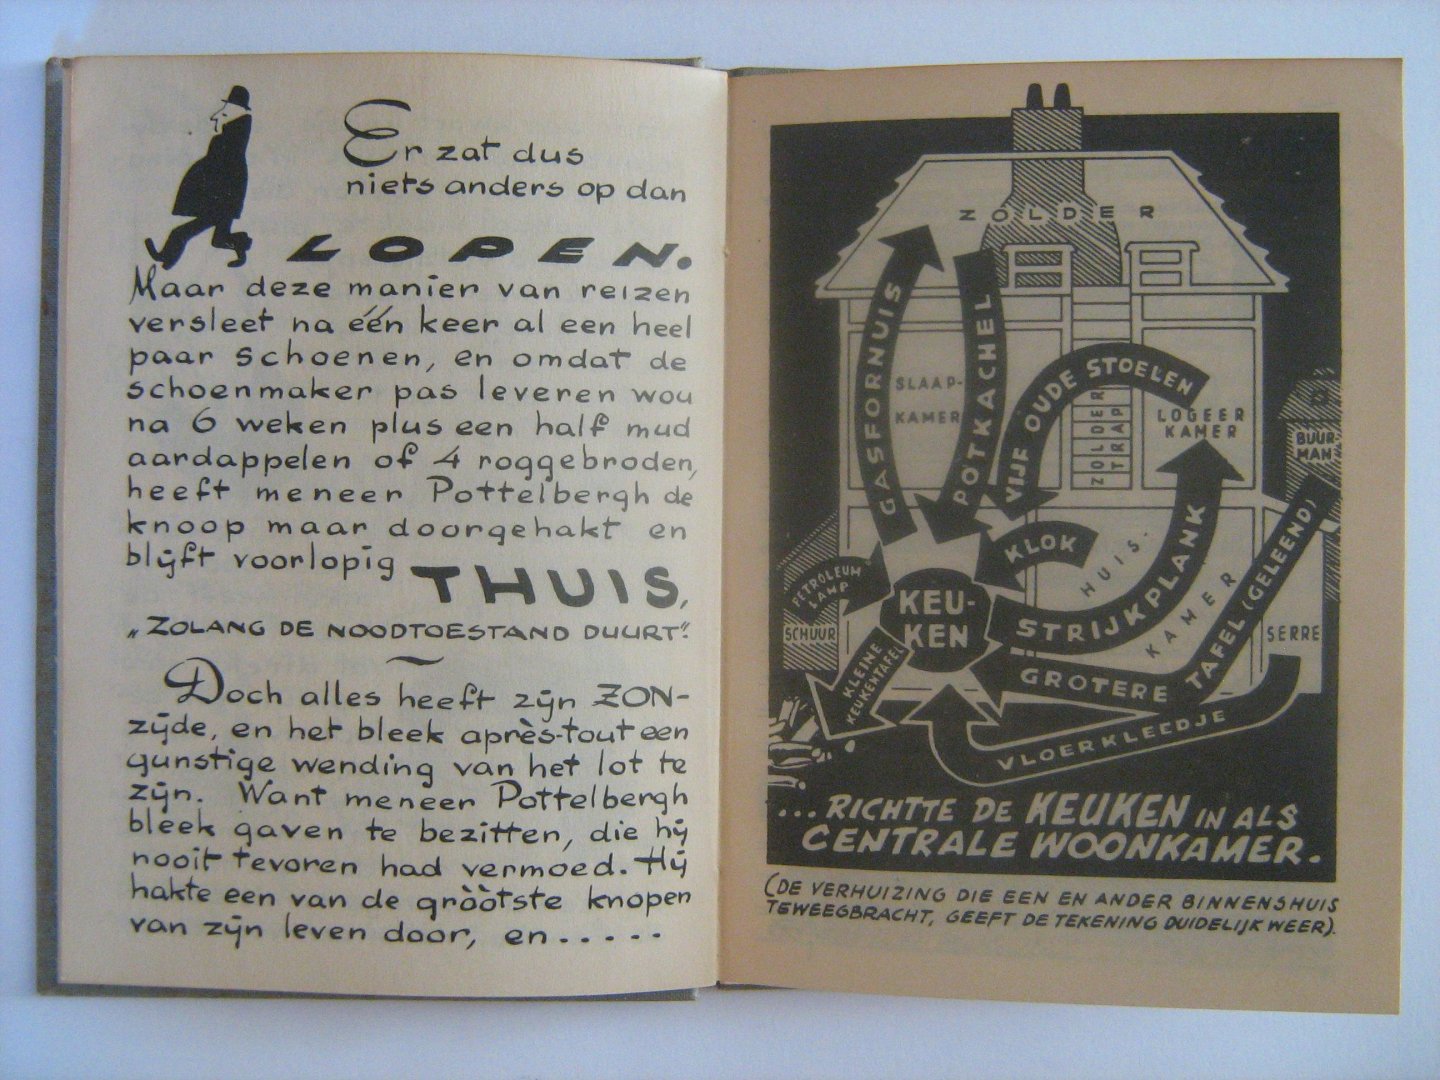 Er zat dus
niets anders op dan
LOPEN.
Maar deze manier van reizen
versleet na één keer al een heel
paar schoenen, en omdat de
schoenmaker pas leveren wou
na 6 weken plus een half mud
aardappelen of 4 roggebroden,
heeft meneer Pottelbergh de
knoop maar doorgehakt en
blijft voorlopig
THUIS,
„ZOLANG DE NOODTOESTAND DUURT".
Doch alles heeft zijn ZON-
zijde, en het bleek après-tout een
gunstige wending van het lot te
zijn. Want meneer Pottelbergh
bleek gaven te bezitten, die hij
nooit tevoren had vermoed. Hij
hakte een van de gròòtste knopen
van zijn leven door, en.....
ZOLDER
GASFORNUIS
POTKACHEL
SLAAP-
KAMER
VIJF OUDE STOELEN
ZOLDER
TRAP
LOGEER
KAMER
BUUR-
MAN
KLOK
HUIS-
KAMER
STRIJKPLANK
TAFEL (GELEEND)
PETROLEUM
LAMP
SCHUUR
KEU-
KEN
SERRE
KLEINE
KEUKENTAFEL
GROTERE
VLOERKLEEDJE
...RICHTTE DE KEUKEN IN ALS
CENTRALE WOONKAMER.
(DE VERHUIZING DIE EEN EN ANDER BINNENSHUIS
TEWEEGBRACHT, GEEFT DE TEKENING DUIDELIJK WEER).